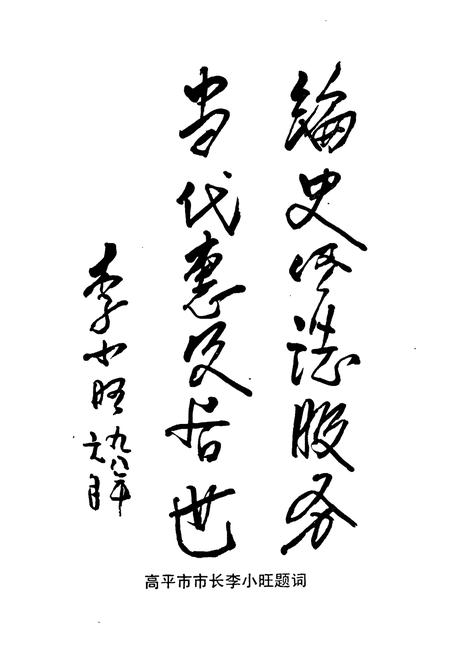 编史修誌服务
当代惠及后世
李小旺
九八年
元月
高平市市长李小旺题词